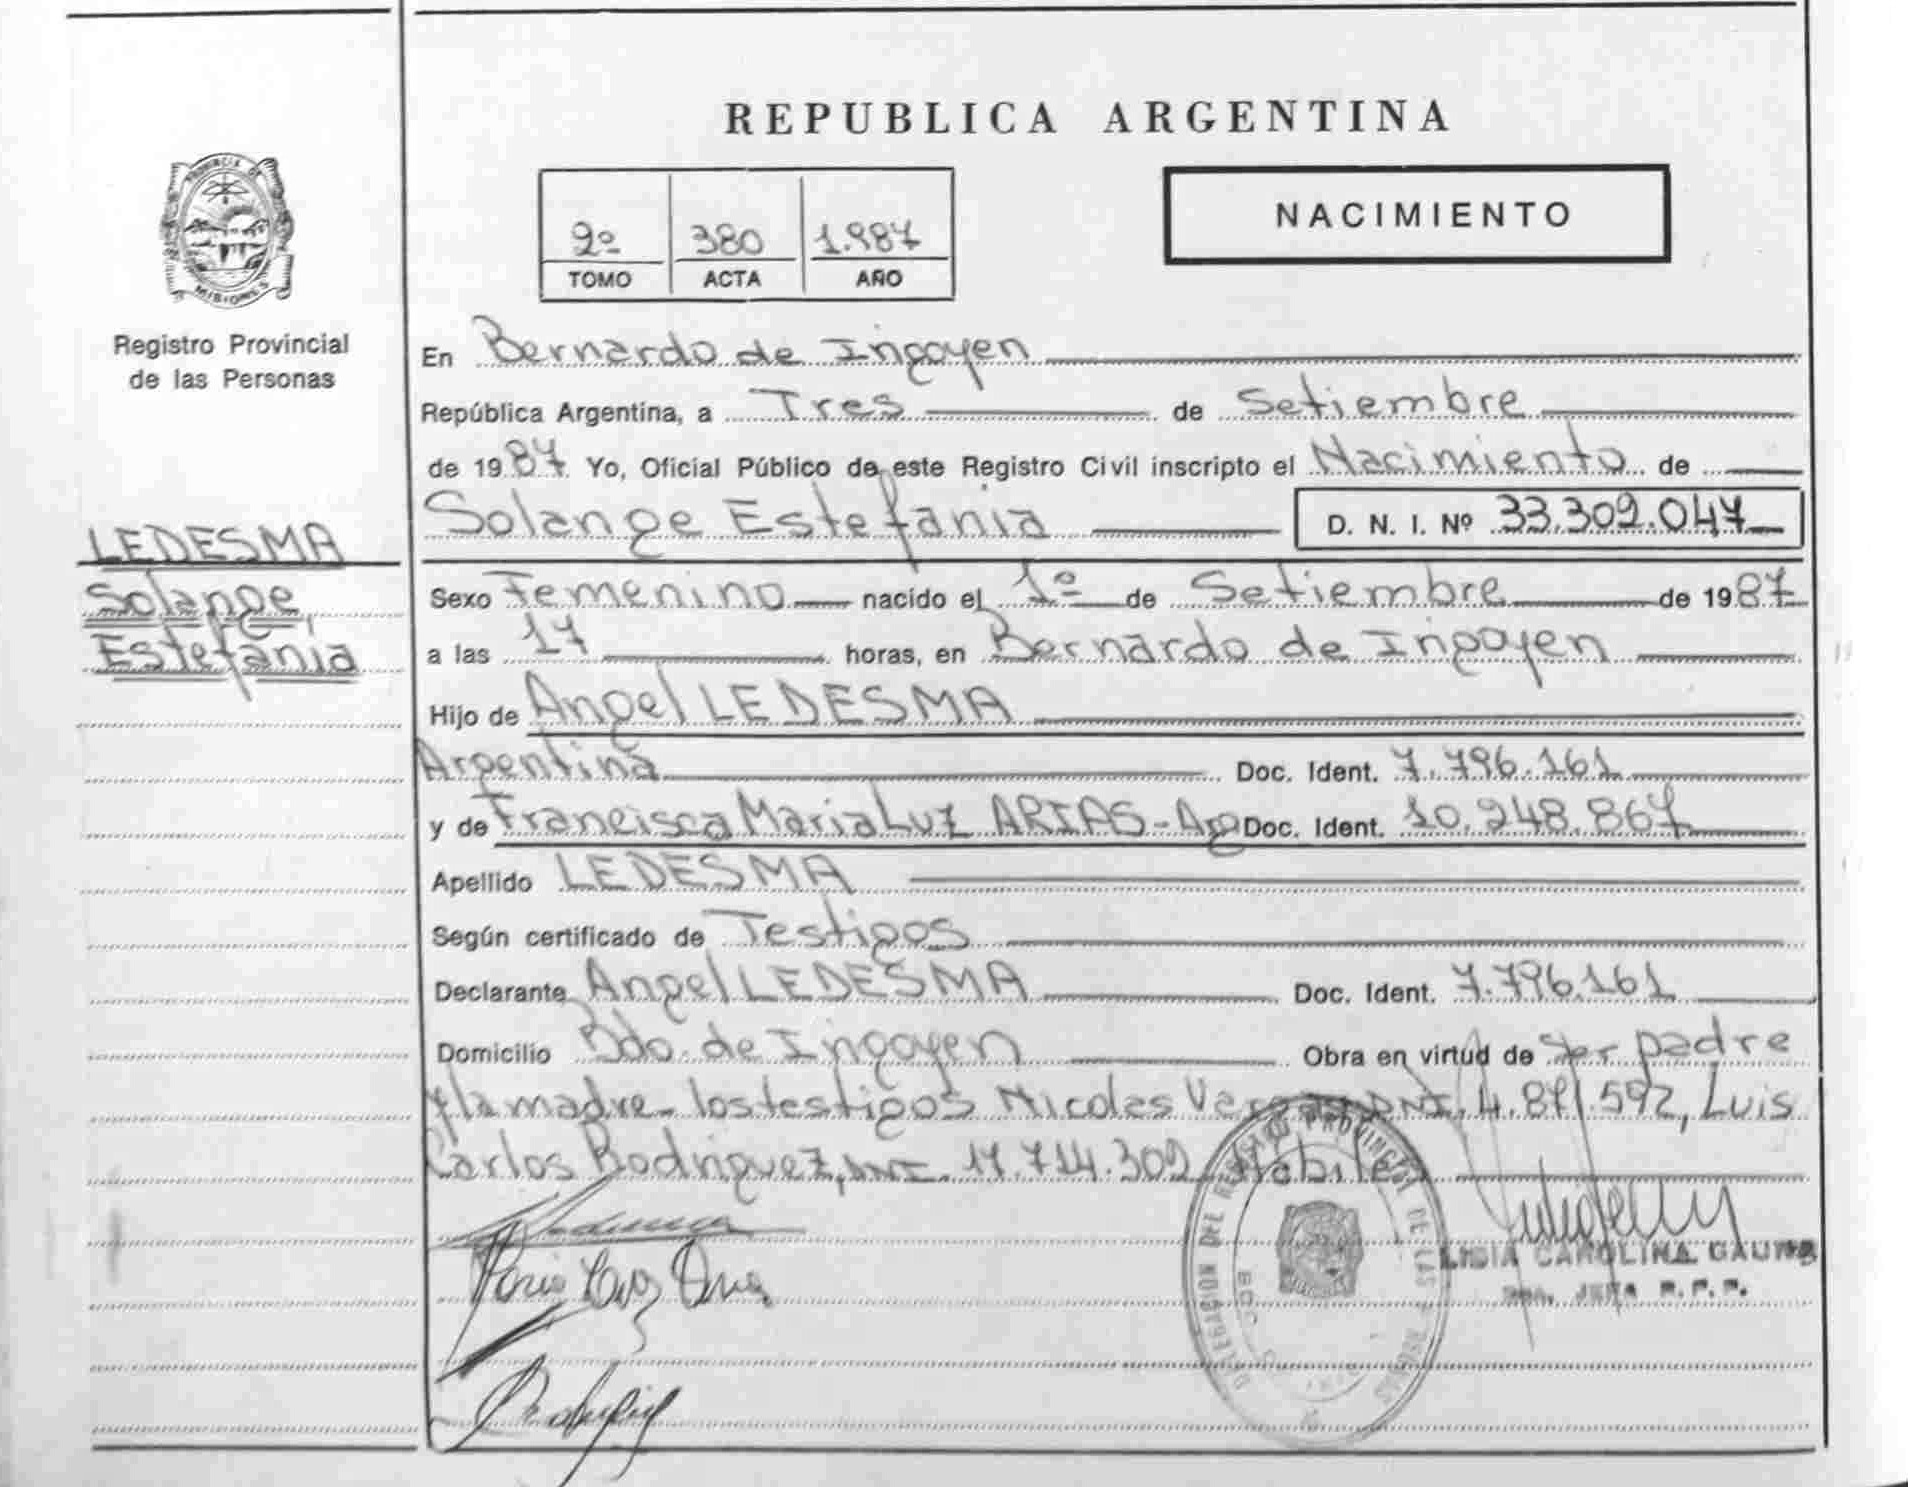 REPUBLICA ARGENTINA
PROVINCIA DE
MISIONES
Registro Provincial
de las Personas
2º 380 1.987
TOMO ACTA AÑO
NACIMIENTO
En Bernardo de Irigoyen
República Argentina, a Tres de Setiembre
de 1987 Yo, Oficial Público de este Registro Civil inscripto el Nacimiento de
Solange Estefania D. N. I. Nº 33.309.047
LEDESMA
Solange
Estefania
Sexo Femenino nacido el 1º de Setiembre de 1987
a las 17 horas, en Bernardo de Irigoyen
Hijo de Angel LEDESMA
Argentina Doc. Ident. 7.796.161
y de Francisca Maria Luz ARIAS - Arg Doc. Ident. 10.948.867
Apellido LEDESMA
Según certificado de Testigos
Declarante Angel LEDESMA Doc. Ident. 7.796.161
Domicilio Bdo. de Irigoyen Obra en virtud de ser padre
y la madre - los testigos Nicolas DNI. 4.871.592, Luis
Carlos Rodriguez, DNI. 17.714.309 Habiles
Maria Luz
DELEGACION DEL REGISTRO PROVINCIAL DE LAS
LIDIA CAROLINA
JEFA R. P. P.